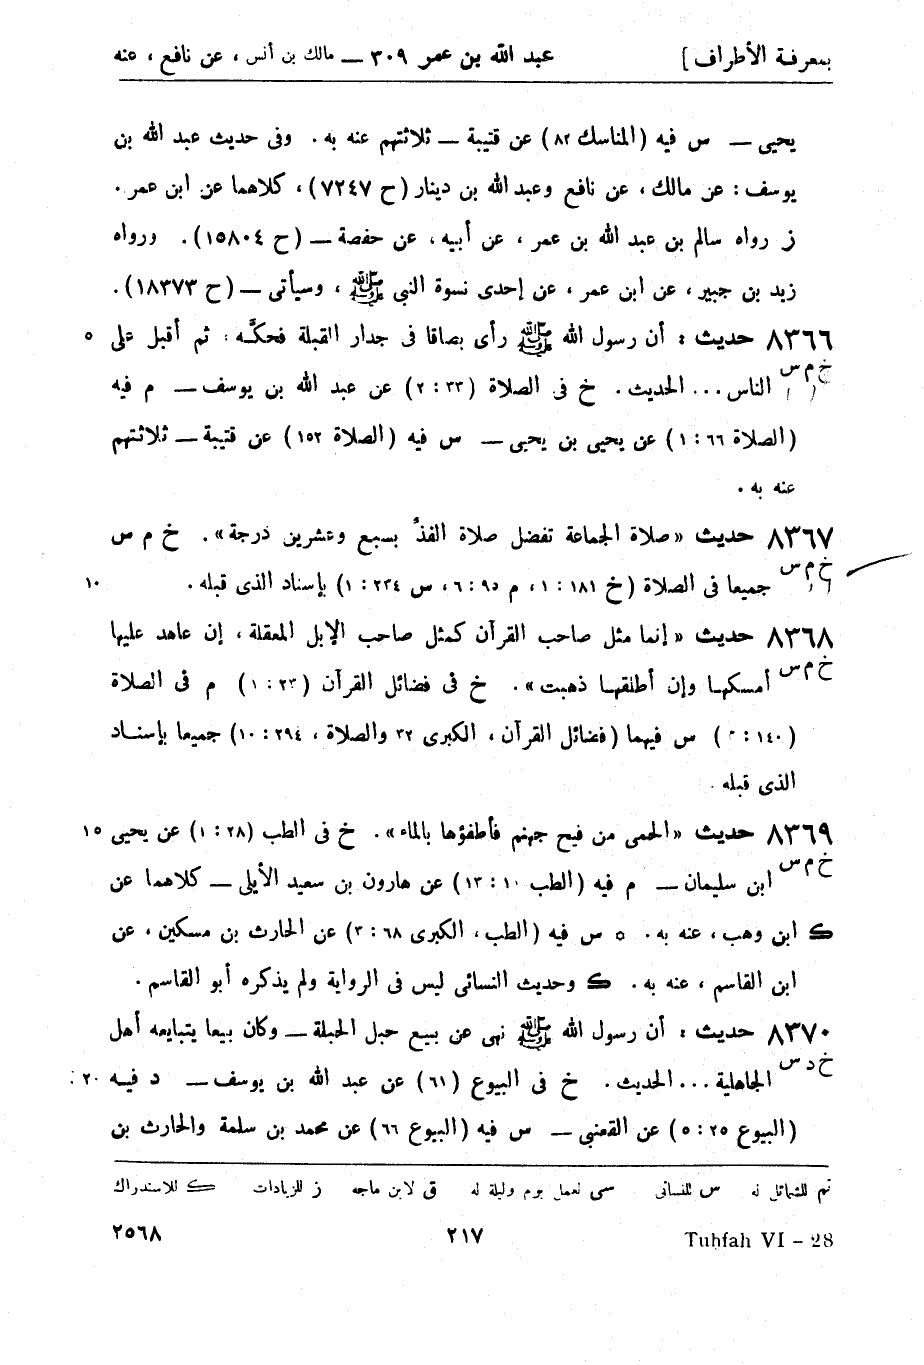 بمعرفة الأطراف ] عبد الله بن عمر ٣٠٩ — مالك بن أنس ، عن نافع ، عنه
يحيى — س فيه (المناسك ٨٢) عن قتيبة — ثلاثتهم عنه به . وفى حديث عبد الله بن
يوسف : عن مالك ، عن نافع وعبد الله بن دينار (ح ٧٢٤٧) ، كلاهما عن ابن عمر .
ز رواه سالم بن عبد الله بن عمر ، عن أبيه ، عن حفصة — (ح ١٥٨٠٤) . ورواه
زيد بن جبير ، عن ابن عمر ، عن إحدى نسوة النبى ﷺ ، وسيأتى — (ح ١٨٣٧٣) .
٨٣٦٦ حديث : أن رسول الله ﷺ رأى بصاقا فى جدار القبلة فحكَّه : ثم أقبل على ٥
خ م س الناس ... الحديث . خ فى الصلاة (٣٣ : ٢) عن عبد الله بن يوسف — م فيه
(الصلاة ٦٦ : ١) عن يحيى بن يحيى — س فيه (الصلاة ١٥٢) عن قتيبة — ثلاثتهم
عنه به .
٨٣٦٧ حديث «صلاة الجماعة تفضل صلاة الفذّ بسبع وعشرين درجة» . خ م س
خ م س جميعا فى الصلاة (خ ١٨١ : ١، م ٩٥ : ٦، س ٢٣٤ : ١) بإسناد الذى قبله . ١٠
٨٣٦٨ حديث «إنما مثل صاحب القرآن كمثل صاحب الإبل المعقلة ، إن عاهد عليها
خ م س أمسكها وإن أطلقها ذهبت» . خ فى فضائل القرآن (٢٣ : ١) م فى الصلاة
(١٤٠ : ) س فيهما (فضائل القرآن ، الكبرى ٣٢ والصلاة ، ٢٩٤ : ١٠) جميعا بإسناد
الذى قبله .
٨٣٦٩ حديث «الحمى من فيح جهنم فأطفؤها بالماء» . خ فى الطب (٢٨ : ١) عن يحيى ١٥
خ م س ابن سليمان — م فيه (الطب ١٠ : ١٣) عن هارون بن سعيد الأيلى — كلاهما عن
ك ابن وهب ، عنه به . ٥ س فيه (الطب ، الكبرى ٦٨ : ٣) عن الحارث بن مسكين ، عن
ابن القاسم ، عنه به . ك وحديث النسائى ليس فى الرواية ولم يذكره أبو القاسم .
٨٣٧٠ حديث : أن رسول الله ﷺ نهى عن بيع حبل الحبلة — وكان بيعا يتبايعه أهل
خ د س الجاهلية ... الحديث . خ فى البيوع (٦١) عن عبد الله بن يوسف — د فيه ٢٠
(البيوع ٢٥ : ٥) عن القعنبى — س فيه (البيوع ٦٦) عن محمد بن سلمة والحارث بن
تم للشمائل له س للنسائى سى لعمل يوم وليلة له ق لابن ماجه ز للزيادات ك للاستدراك
Tuḥfah VI – 28 ٢١٧ ٢٥٦٨